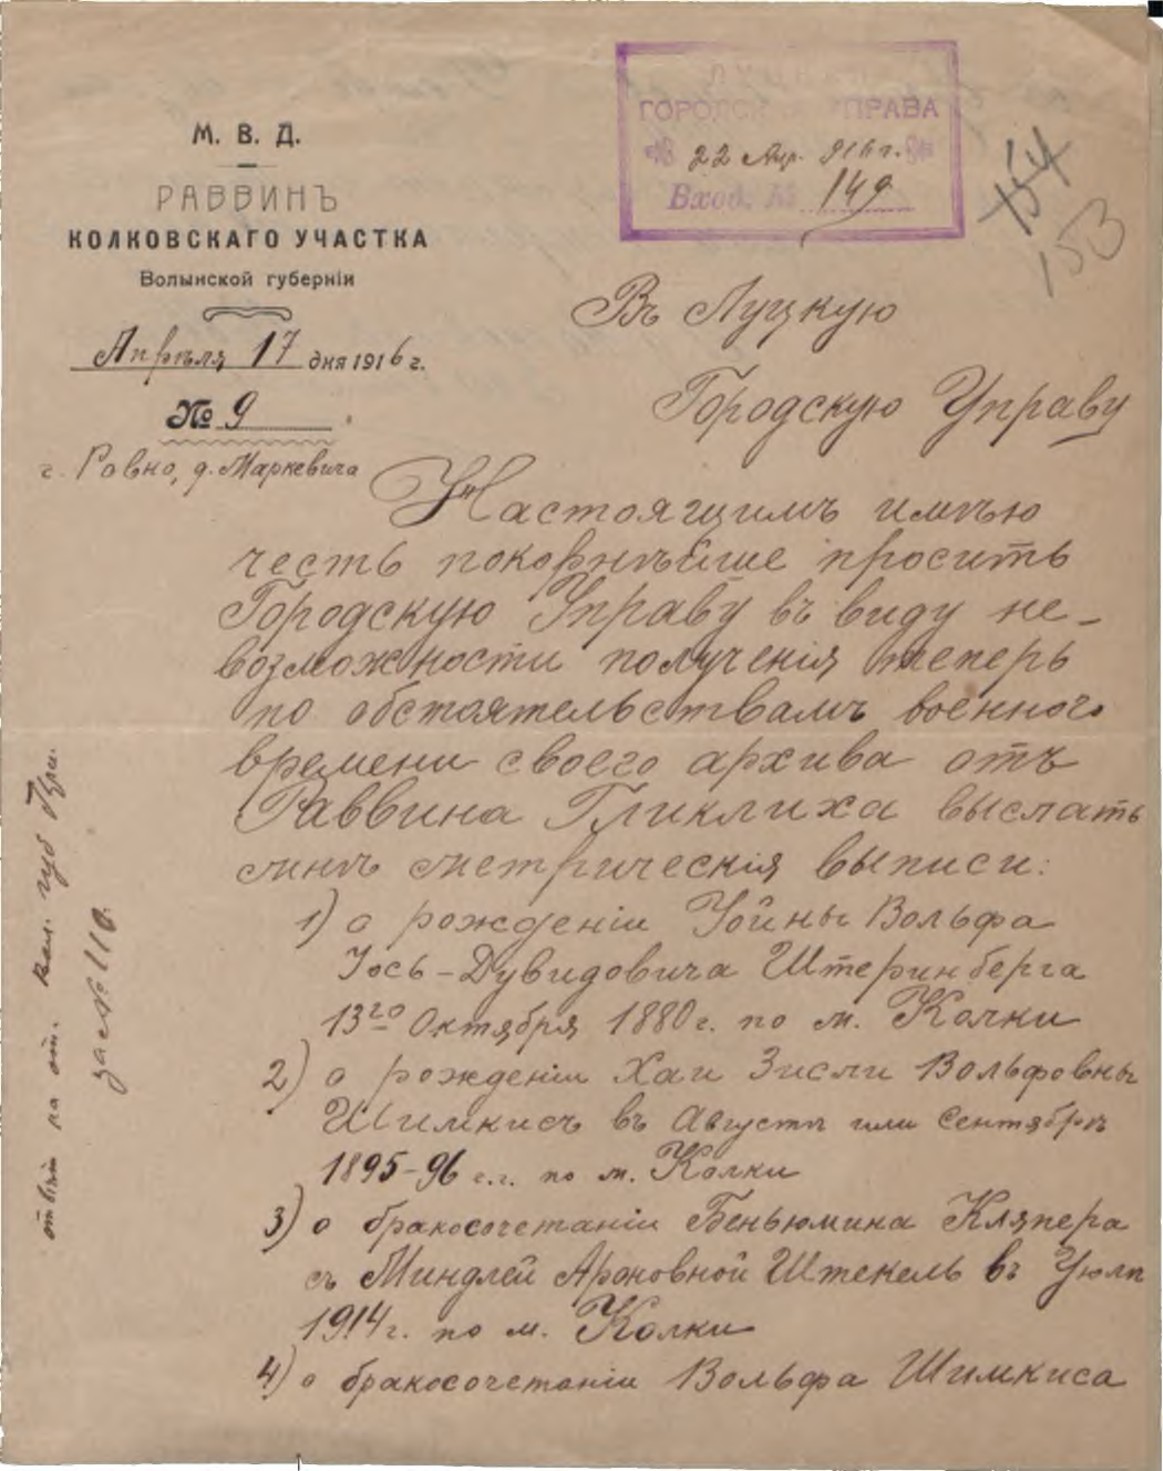 М. В. Д.
РАВВИНЪ
КОЛКОВСКАГО УЧАСТКА
Волынской губернiи
Апрѣля 17 дня 1916 г.
№ 9
г. Ровно, д. Маркевича
ГОРОДСК УПРАВА
22 Апр. 916 г.
Вход. № 149
154
153
Въ Луцкую
Городскую Управу
Настоящимъ имѣю
честь покорнѣйше просить
Городскую Управу въ виду не-
возможности полученiя теперь
по обстоятельствамъ военного
времени своего архива отъ
Раввина Гликлиха выслать
мнѣ метрическiя выписи:
1) о рожденiи Iойны Вольфа
Iось-Дувидовича Штеринберга
13го Октября 1880 г. по м. Колки
2) о рожденiи Хаи Зисли Вольфовны
Шимкисъ въ Августѣ или Сентябрѣ
1895-96 г.г. по м. Колки
3) о бракосочетанiи Беньюмина Кляпера
съ Миндлей Ароновной Штекель въ Iюлѣ
1914 г. по м. Колки
4) о бракосочетанiи Вольфа Шимкиса